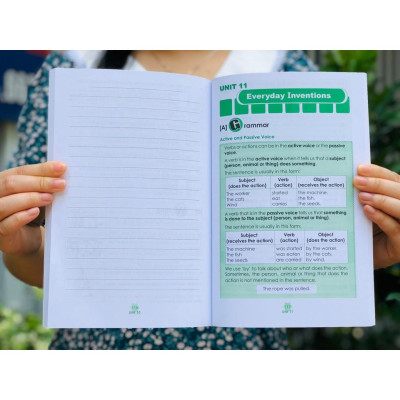 UNIT 11
Everyday Inventions
(A) Grammar
Active and Passive Voice
Verbs or actions can be in the active voice or the passive
voice.
A verb is in the active voice when it tells us that a subject
(person, animal or thing) does something.
The sentence is usually in this form:
Subject Verb Object
(does the action) (action) (receives the action)
The worker started the machine.
The cats eat the fish.
Wind carries the seeds.
A verb that is in the passive voice tells us that something
is done to the subject (person, animal or thing).
The sentence is usually in this form:
Subject Verb Object
(receives the action) (action) (does the action)
The machine was started by the worker.
The fish was eaten by the cats.
The seeds are carried by wind.
We use "by" to talk about who or what does the action.
Sometimes, the person, animal or thing that does the
action is not mentioned in the sentence.
The rope was pulled.